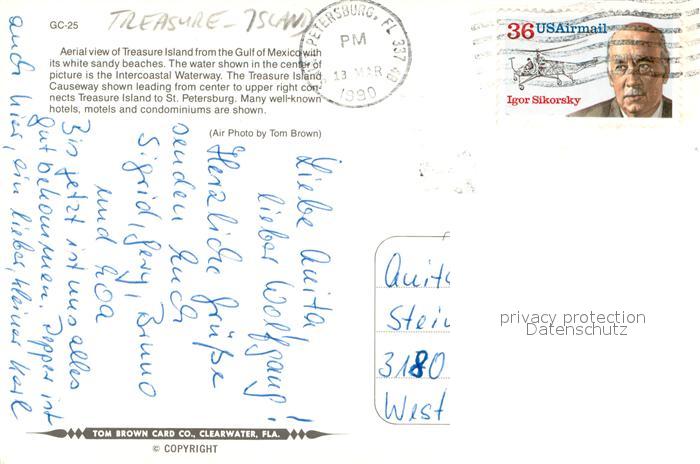 GC-25
TREASURE-ISLAND
Aerial view of Treasure Island from the Gulf of Mexico with
its white sandy beaches. The water shown in the center of
picture is the Intercoastal Waterway. The Treasure Island
Causeway shown leading from center to upper right con-
nects Treasure Island to St. Petersburg. Many well-known
hotels, motels and condominiums are shown.
(Air Photo by Tom Brown)
PETERSBURG, FL 337
PM
13 MAR
1990
36 USAirmail
Igor Sikorsky
Liebe Anita
lieber Wolfgang!
Herzliche Grüße
senden Euch
Sigrid, Gery, Bruno
und
Bis jetzt ist uns alles
gut bekommen. Pepper ist
auch hier, ein lieber, kleiner Kerl
Anita
Stein
3180
West
privacy protection
Datenschutz
TOM BROWN CARD CO., CLEARWATER, FLA.
© COPYRIGHT